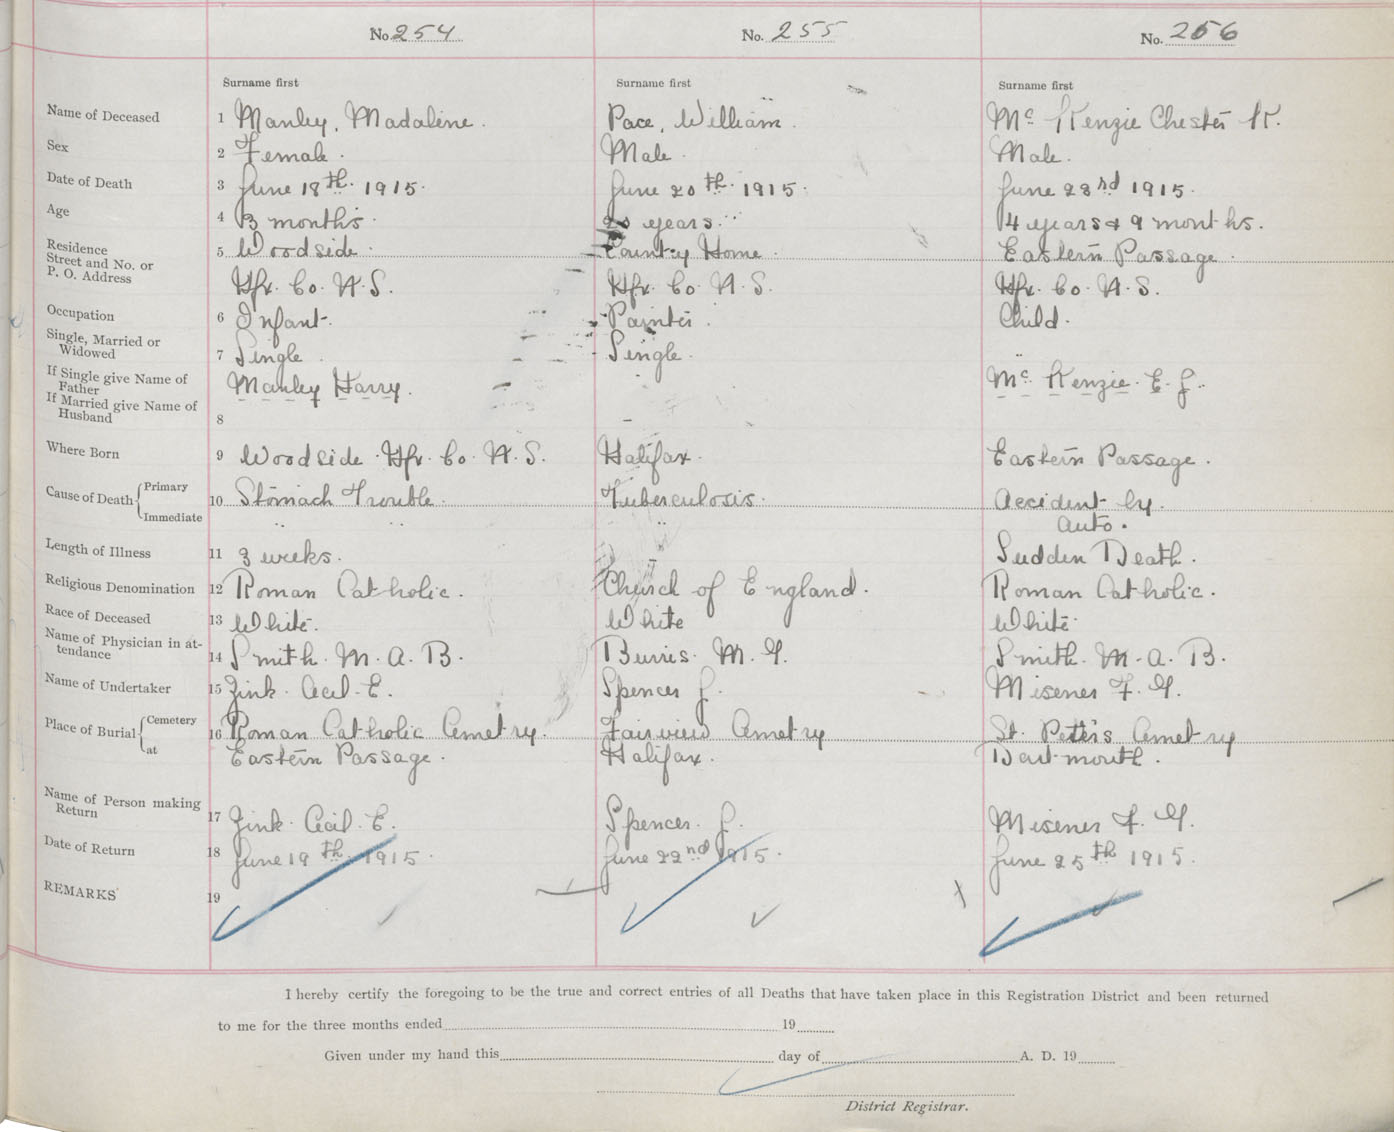 No. 254 No. 255 No. 256
Surname first Surname first Surname first
Name of Deceased 1 Manley, Madaline. Pace, William. Mc Kenzie Chester K.
Sex 2 Female. Male. Male.
Date of Death 3 June 18th. 1915. June 20th. 1915. June 23rd 1915.
Age 4 3 months. years. 4 years & 9 months.
Residence
Street and No. or 5 Woodside. County Home. Eastern Passage.
P. O. Address Hfx. Co. N. S. Hfx. Co. N. S. Hfx. Co. N. S.
Occupation 6 Infant. Painter. Child.
Single, Married or
Widowed 7 Single. Single.
If Single give Name of
Father Manley Harry. Mc Kenzie. E. J.
If Married give Name of
Husband 8
Where Born 9 Woodside. Hfx. Co. N. S. Halifax. Eastern Passage.
Cause of Death { Primary 10 Stomach Trouble. Tuberculosis. Accident by.
Immediate Auto.
Length of Illness 11 3 weeks. Sudden Death.
Religious Denomination 12 Roman Catholic. Church of England. Roman Catholic.
Race of Deceased 13 White. White White.
Name of Physician in at-
tendance 14 Smith. M. A. B. Burris. M. G. Smith. M. A. B.
Name of Undertaker 15 Zink. Cecil. E. Spencer J. Misener F. G.
Place of Burial { Cemetery 16 Roman Catholic Cemetry. Fairview Cemetry St. Peter's Cemetry
at Eastern Passage. Halifax. Dartmouth.
Name of Person making
Return 17 Zink. Cecil. E. Spencer. J. Misener F. G.
Date of Return 18 June 19th. 1915. June 22nd 1915. June 25th 1915.
REMARKS 19
I hereby certify the foregoing to be the true and correct entries of all Deaths that have taken place in this Registration District and been returned
to me for the three months ended 19
Given under my hand this day of A. D. 19
District Registrar.